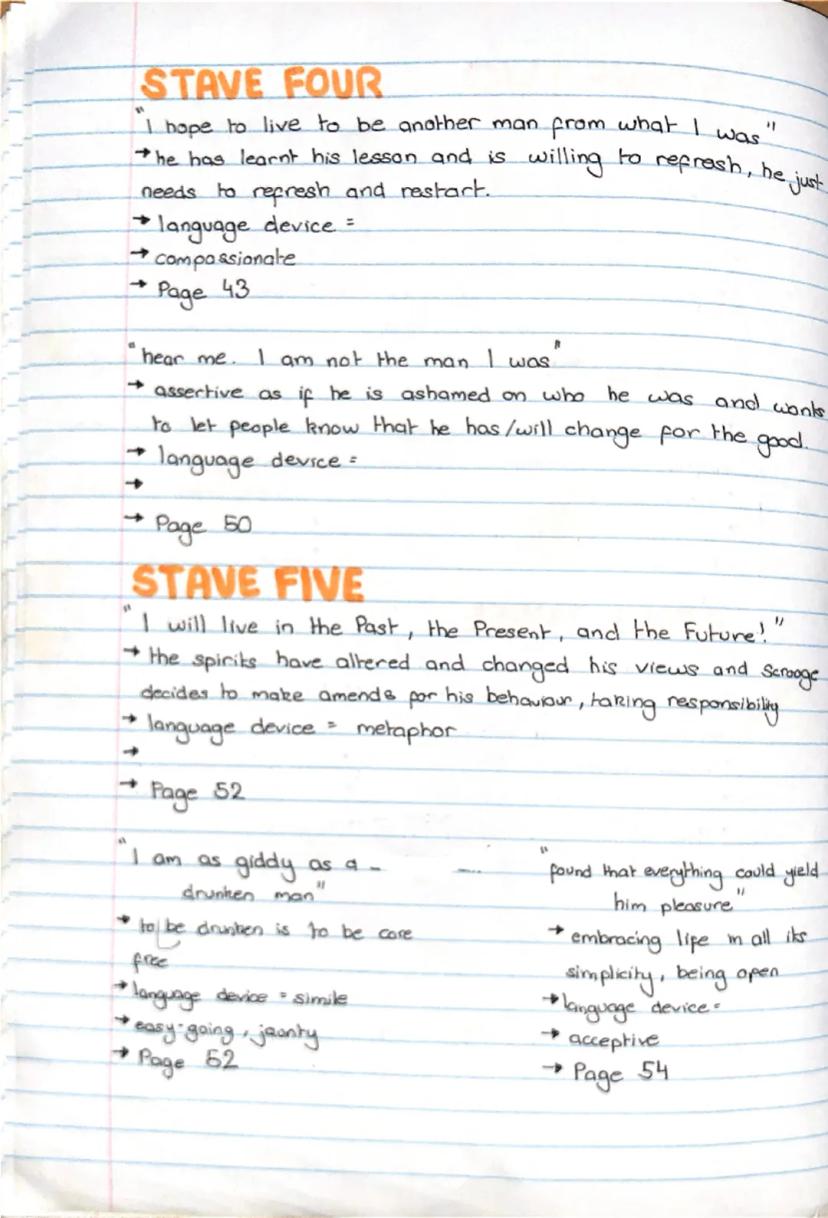 STAVE FOUR
"I hope to live to be another man from what I was"
→ he has learnt his lesson and is willing to refresh, he just
needs to refresh and restart.
→ language device =
→ compassionate
→ Page 43
"hear me. I am not the man I was"
→ assertive as if he is ashamed on who he was and wants
to let people know that he has/will change for the good.
→ language device =
→
→ Page 50
STAVE FIVE
"I will live in the Past, the Present, and the Future!"
→ the spirits have altered and changed his views and scrooge
decides to make amends for his behaviour, taking responsibility
→ language device = metaphor
→
→ Page 52
"I am as giddy as a -
drunken man"
→ to be drunken is to be care
free
→ language device = simile
→ easy-going, jaunty
→ Page 52
"found that everything could yield
him pleasure"
→ embracing life in all its
simplicity, being open
→ language device =
→ acceptive
→ Page 54